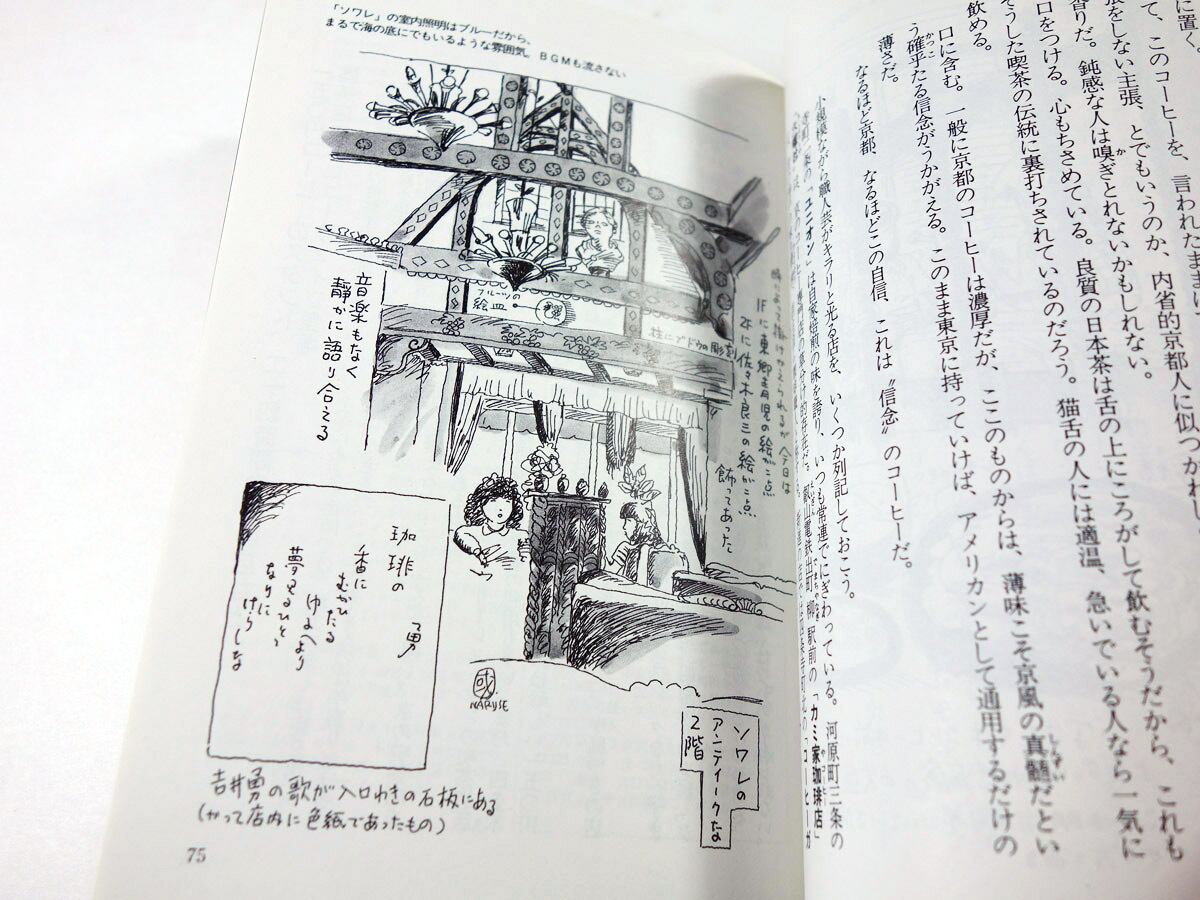 に置く
て、このコーヒーを、言われたまま
張をしない主張、とでもいうのか、内省的京都人に似つかわし
香りだ。鈍感な人は嗅ぎとれないかもしれない。
か
口をつける。心もちさめている。良質の日本茶は舌の上にころがして飲むそうだから、これも
そうした喫茶の伝統に裏打ちされているのだろう。猫舌の人には適温、急いでいる人なら一気に
飲める。
口に含む。一般に京都のコーヒーは濃厚だが、ここのものからは、薄味こそ京風の真髄だとい
しんずい
う確乎たる信念がうかがえる。このまま東京に持っていけば、アメリカンとして通用するだけの
かっこ
薄さだ。
なるほど京都、なるほどこの自信、これは〝信念〟のコーヒーだ。
小規模ながら職人芸がキラリと光る店を、いくつか列記しておこう。河原町三条の
「ユニオン」は自家焙煎の味を誇り、いつも常連でにぎわっている。
叡山電鉄出町柳駅前の「カミ家珈琲店」
「ソワレ」の室内照明はブルーだから、
まるで海の底にでもいるような雰囲気。BGMも流さない
フルーツの
絵皿
柱にブドウの彫刻
時によって掛けかえられるが今日は
1Fに東郷青児の絵が二点
2Fに佐々木良三の絵が二点
飾ってあった
音楽もなく
静かに語り合える
珈琲の
香に
むかひたる
ゆふべより
夢見るひとと
なりに
けらしな
勇
國
NARUSE
ソワレの
アンティークな
2階
吉井勇の歌が入口わきの石板にある
(かつて店内に色紙であったもの)
75